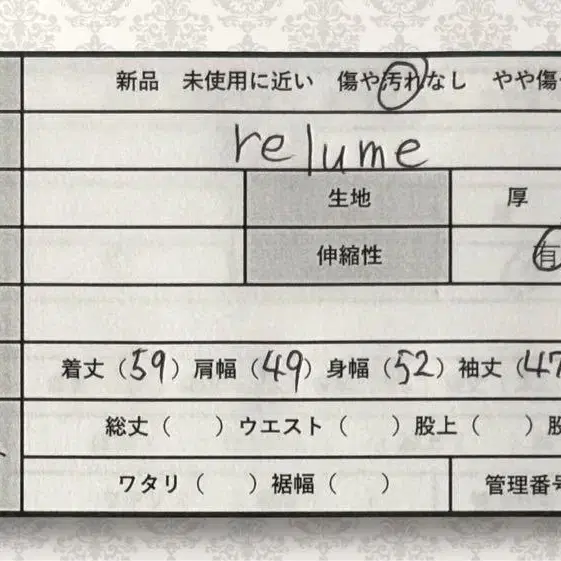 新品 未使用に近い 傷や汚れなし やや傷
relume
生地 厚
伸縮性 有
着丈（59）肩幅（49）身幅（52）袖丈（47
総丈（ ）ウエスト（ ）股上（ ）股
ワタリ（ ）裾幅（ ） 管理番号